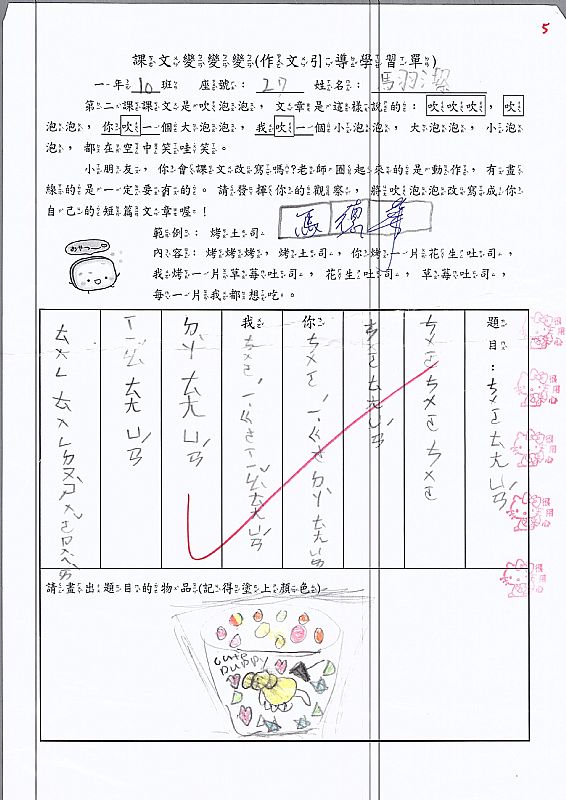 5
課文變變變(作文引導學習單)
一年10班 座號:27 姓名:馬羽潔
第二課課文是吹泡泡,文章是這樣說的:吹吹吹,吹
泡泡,你吹一個大泡泡,我吹一個小泡泡,大泡泡,小泡
泡,都在空中笑哇笑。
小朋友,你會課文改寫嗎?老師圈起來的是動作,有畫
線的是一定要有的。請發揮你的觀察,將吹泡泡改寫成你
自己的短篇文章喔!
範例:烤土司
內容:烤烤烤,烤土司,你烤一片花生吐司,
我烤一片草莓吐司,花生吐司,草莓吐司,
每一片我都想吃。
題目:ㄔㄨㄛ ㄊㄤ ㄩㄢˊ
ㄔㄨㄛ ㄔㄨㄛ ㄔㄨㄛ
ㄔㄨㄛ ㄊㄤ ㄩㄢˊ
你ㄔㄨㄛ 一 ㄍㄜ ㄉㄚˋ ㄊㄤ ㄩㄢˊ
我ㄔㄨㄛ 一 ㄍㄜ ㄒㄧㄠˇ ㄊㄤ ㄩㄢˊ
ㄉㄚˋ ㄊㄤ ㄩㄢˊ
ㄒㄧㄠˇ ㄊㄤ ㄩㄢˊ
請畫出題目的物品(記得塗上顏色)
cute
puppy
很用心
很用心
很用心
很用心
很用心